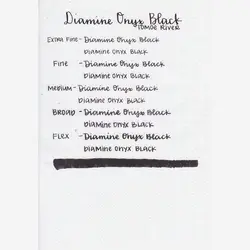 Diamine Onyx Black
TOMOE RIVER
EXTRA FINE - Diamine Onyx Black
DIAMINE ONYX BLACK
FINE - Diamine Onyx Black
DIAMINE ONYX BLACK
MEDIUM - Diamine Onyx Black
DIAMINE ONYX BLACK
BROAD - Diamine Onyx Black
DIAMINE ONYX BLACK
FLEX - Diamine Onyx Black
DIAMINE ONYX BLACK